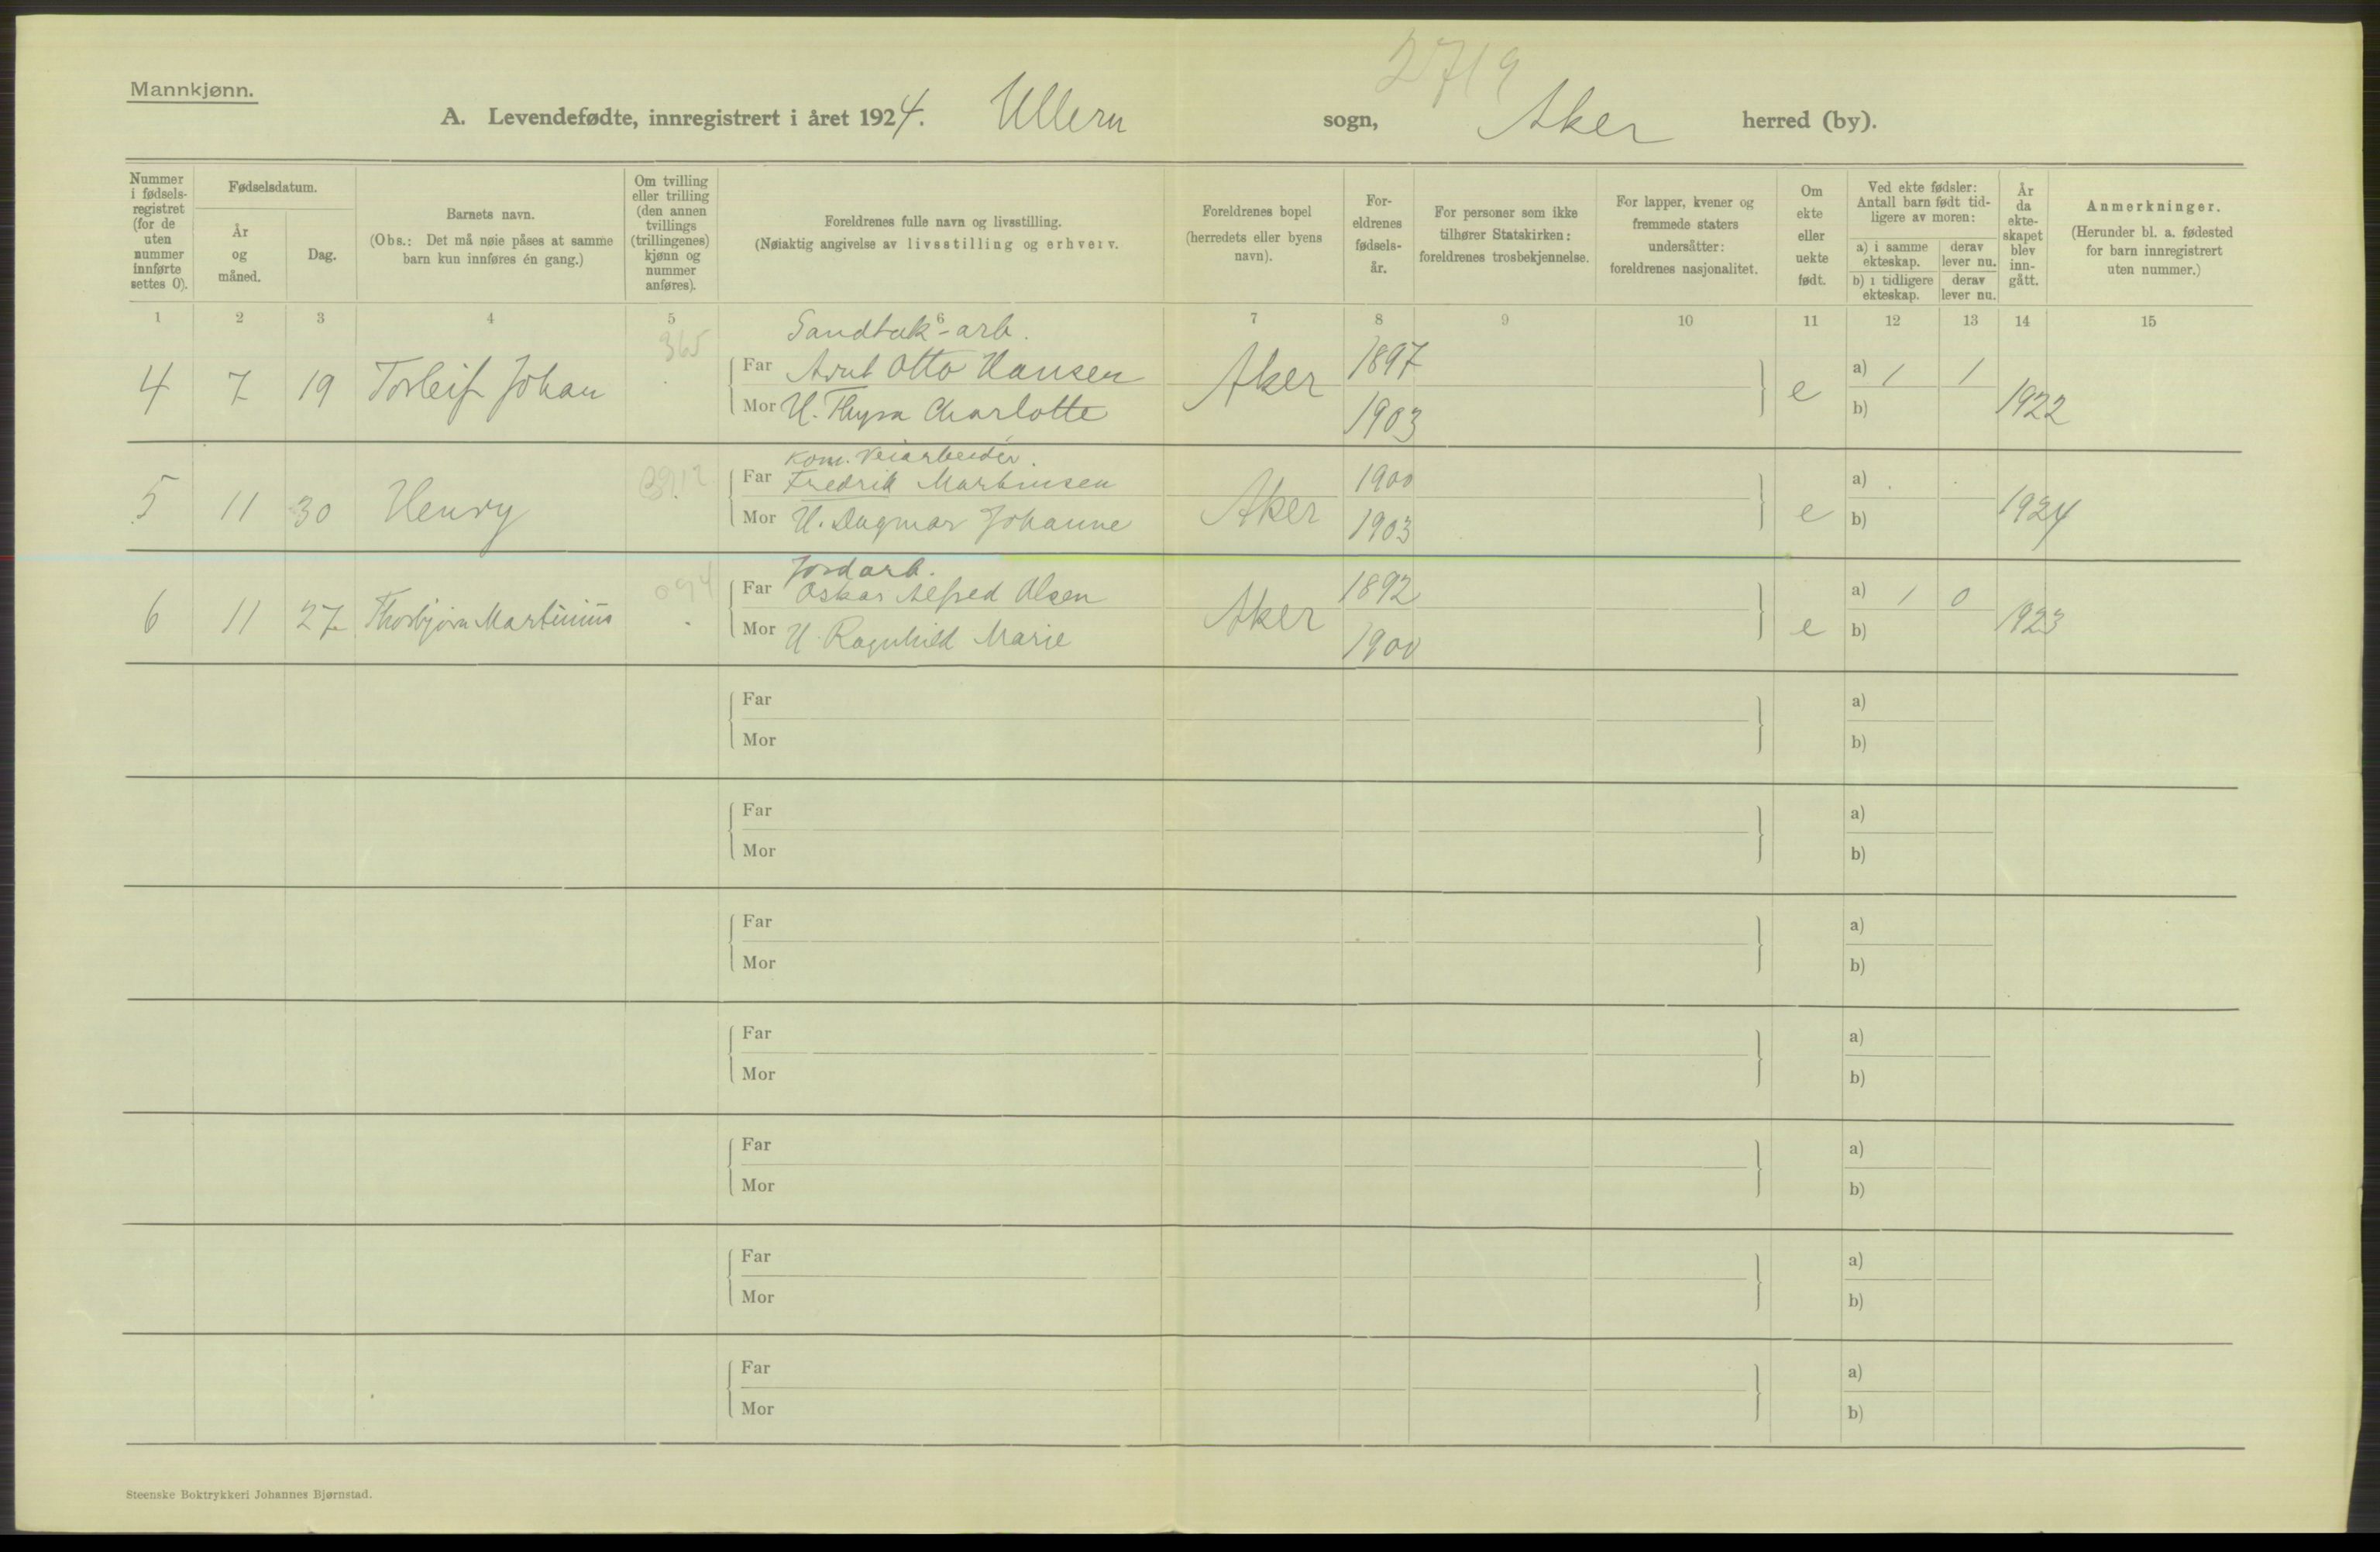 2719
Mannkjønn.
A. Levendefødte, innregistrert i året 1924. Ullern sogn, Aker herred (by).
Nummer i fødselsregistret (for de uten nummer innførte settes 0).
Fødselsdatum.
År og måned.
Dag.
Barnets navn.
(Obs.: Det må nøie påses at samme barn kun innføres én gang.)
Om tvilling eller trilling (den annen tvillings (trillingenes) kjønn og nummer anføres).
Foreldrenes fulle navn og livsstilling.
(Nøiaktig angivelse av livsstilling og erhverv.
Foreldrenes bopel (herredets eller byens navn).
Foreldrenes fødselsår.
For personer som ikke tilhører Statskirken: foreldrenes trosbekjennelse.
For lapper, kvener og fremmede staters undersåtter: foreldrenes nasjonalitet.
Om ekte eller uekte født.
Ved ekte fødsler: Antall barn født tidligere av moren:
a) i samme ekteskap. derav lever nu.
b) i tidligere ekteskap. derav lever nu.
År da ekteskapet blev inngått.
Anmerkninger.
(Herunder bl. a. fødested for barn innregistrert uten nummer.)
1 2 3 4 5 6 7 8 9 10 11 12 13 14 15
365 Sandtak-arb.
4 7 19 Torleif Johan Far Arnt Otto Hansen Aker 1897 e a) 1 1 1922
Mor H. Thyra Charlotte 1903 b)
Kom. Veiarbeider.
5 11 30 Henry Far Fredrik Martinsen Aker 1900 e a) 1924
Mor H. Dagmar Johanne 1903 b)
094 Jordarb.
6 11 27 Thorbjørn Martinius Far Oskar Alfred Olsen Aker 1892 e a) 1 0 1923
Mor H. Ragnhild Marie 1900 b)
Far a)
Mor b)
Far a)
Mor b)
Far a)
Mor b)
Far a)
Mor b)
Far a)
Mor b)
Far a)
Mor b)
Far a)
Mor b)
Steenske Boktrykkeri Johannes Bjørnstad.